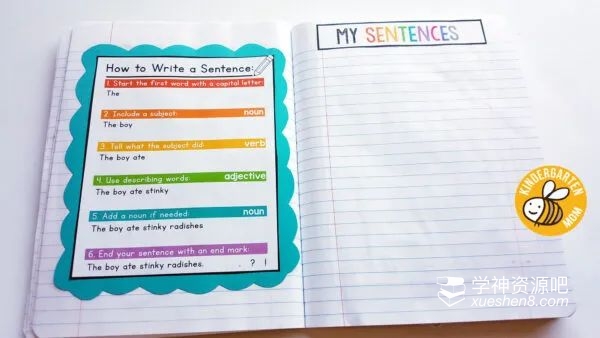 How to Write a Sentence:
1. Start the first word with a capital letter:
The
2. Include a subject: noun
The boy
3. Tell what the subject did: verb
The boy ate
4. Use describing words: adjective
The boy ate stinky
5. Add a noun if needed: noun
The boy ate stinky radishes
6. End your sentence with an end mark:
The boy ate stinky radishes. . ? !
MY SENTENCES
KINDERGARTEN
MOM
学神资源吧
xueshen8.com